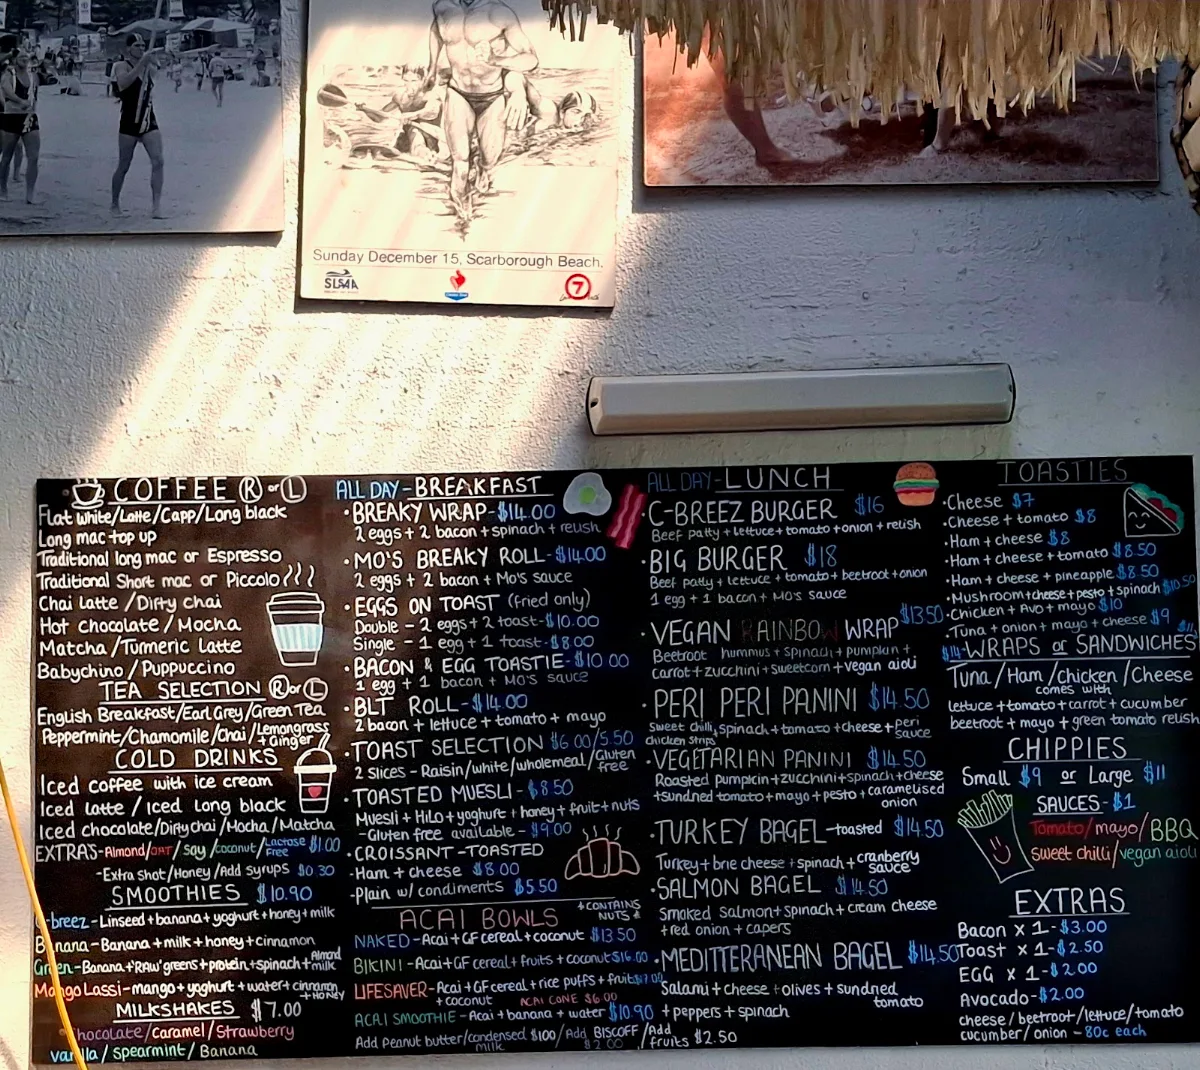 Sunday December 15, Scarborough Beach.
SLSA
7
COFFEE R or L
Flat white/Latte/Capp/Long black
Long mac top up
Traditional long mac or Espresso
Traditional Short mac or Piccolo
Chai latte / Dirty chai
Hot chocolate / Mocha
Matcha/Turmeric latte
Babychino / Puppuccino
TEA SELECTION R or L
English Breakfast/Earl Grey/Green Tea
Peppermint/Chamomile/Chai/Lemongrass + Ginger
COLD DRINKS
Iced coffee with ice cream
Iced latte / Iced long black
Iced chocolate/Dirty chai/Mocha/Matcha
EXTRAS-Almond/OAT/Soy/coconut/Lactose Free $1.00
-Extra shot/Honey/Add syrups $0.30
SMOOTHIES $10.90
C-breez-Linseed+banana+yoghurt+honey+milk
Banana-Banana+milk+honey+cinnamon
Green-Banana+'RAW'greens+protein+spinach+Almond milk
Mango Lassi-mango+yoghurt+water+cinnamon +HONEY
MILKSHAKES $7.00
Chocolate/Caramel/Strawberry
Vanilla/Spearmint/Banana
ALL DAY-BREAKFAST
·BREAKY WRAP-$14.00
2 eggs+2 bacon+spinach+relish
·MO'S BREAKY ROLL-$14.00
2 eggs + 2 bacon + Mo's sauce
·EGGS ON TOAST (fried only)
Double - 2 eggs+2 toast-$10.00
Single - 1 egg+1 toast-$8.00
·BACON & EGG TOASTIE-$10.00
1 egg + 1 bacon + MO'S sauce
·BLT ROLL-$14.00
2 bacon + lettuce + tomato + mayo
·TOAST SELECTION $6.00/5.50
2 slices - Raisin/white/wholemeal/Gluten free
·TOASTED MUESLI-$8.50
Muesli + HiLo+yoghurt+honey+fruit+nuts
-Gluten free available-$9.00
·CROISSANT-TOASTED
·Ham + cheese $8.00
·Plain w/ condiments $5.50
ACAI BOWLS *CONTAINS NUTS*
NAKED-Acai+GF cereal+coconut $13.50
BIKINI-Acai+GF cereal+fruits+coconut $16.00
LIFESAVER-Acai+GF cereal+rice puffs+fruit $17.00
+coconut ACAI CONE $6.00
ACAI SMOOTHIE-Acai+banana+water $10.90
Add Peanut butter/condensed milk $1.00/Add BISCOFF $2.00/Add fruits $2.50
ALL DAY-LUNCH
·C-BREEZ BURGER $16
Beef patty+lettuce+tomato+onion+relish
·BIG BURGER $18
Beef patty+lettuce+tomato+beetroot+onion
1 egg + 1 bacon + MO'S sauce
·VEGAN RAINBOW WRAP $13.50
Beetroot hummus+spinach+pumpkin+
Carrot+zucchini+sweetcorn+vegan aioli
·PERI PERI PANINI $14.50
Sweet chilli chicken strips, spinach+tomato+cheese+peri sauce
·VEGETARIAN PANINI $14.50
Roasted pumpkin+zucchini+spinach+cheese
+sundried tomato+mayo+pesto+caramelised onion
·TURKEY BAGEL-toasted $14.50
Turkey+brie cheese+spinach+cranberry sauce
·SALMON BAGEL $14.50
Smoked Salmon+Spinach+cream cheese
+red onion + capers
·MEDITERRANEAN BAGEL $14.50
Salami+cheese+olives+sundried tomato
+ peppers + spinach
TOASTIES
·Cheese $7
·Cheese + tomato $8
·Ham + cheese $8
·Ham + cheese + tomato $8.50
·Ham + cheese + pineapple $8.50
·Mushroom+cheese+pesto+spinach $10.50
·Chicken + Avo + mayo $10
·Tuna + onion + mayo + cheese $9
$14-WRAPS or SANDWICHES $11
Tuna/Ham/Chicken/Cheese
comes with
lettuce+tomato+carrot+cucumber
beetroot + mayo + green tomato relish
CHIPPIES
Small $9 or Large $11
SAUCES-$1
Tomato/mayo/BBQ
sweet chilli/vegan aioli
EXTRAS
Bacon x 1-$3.00
Toast x 1-$2.50
EGG x 1-$2.00
Avocado-$2.00
cheese/beetroot/lettuce/tomato
cucumber/onion - 80c each